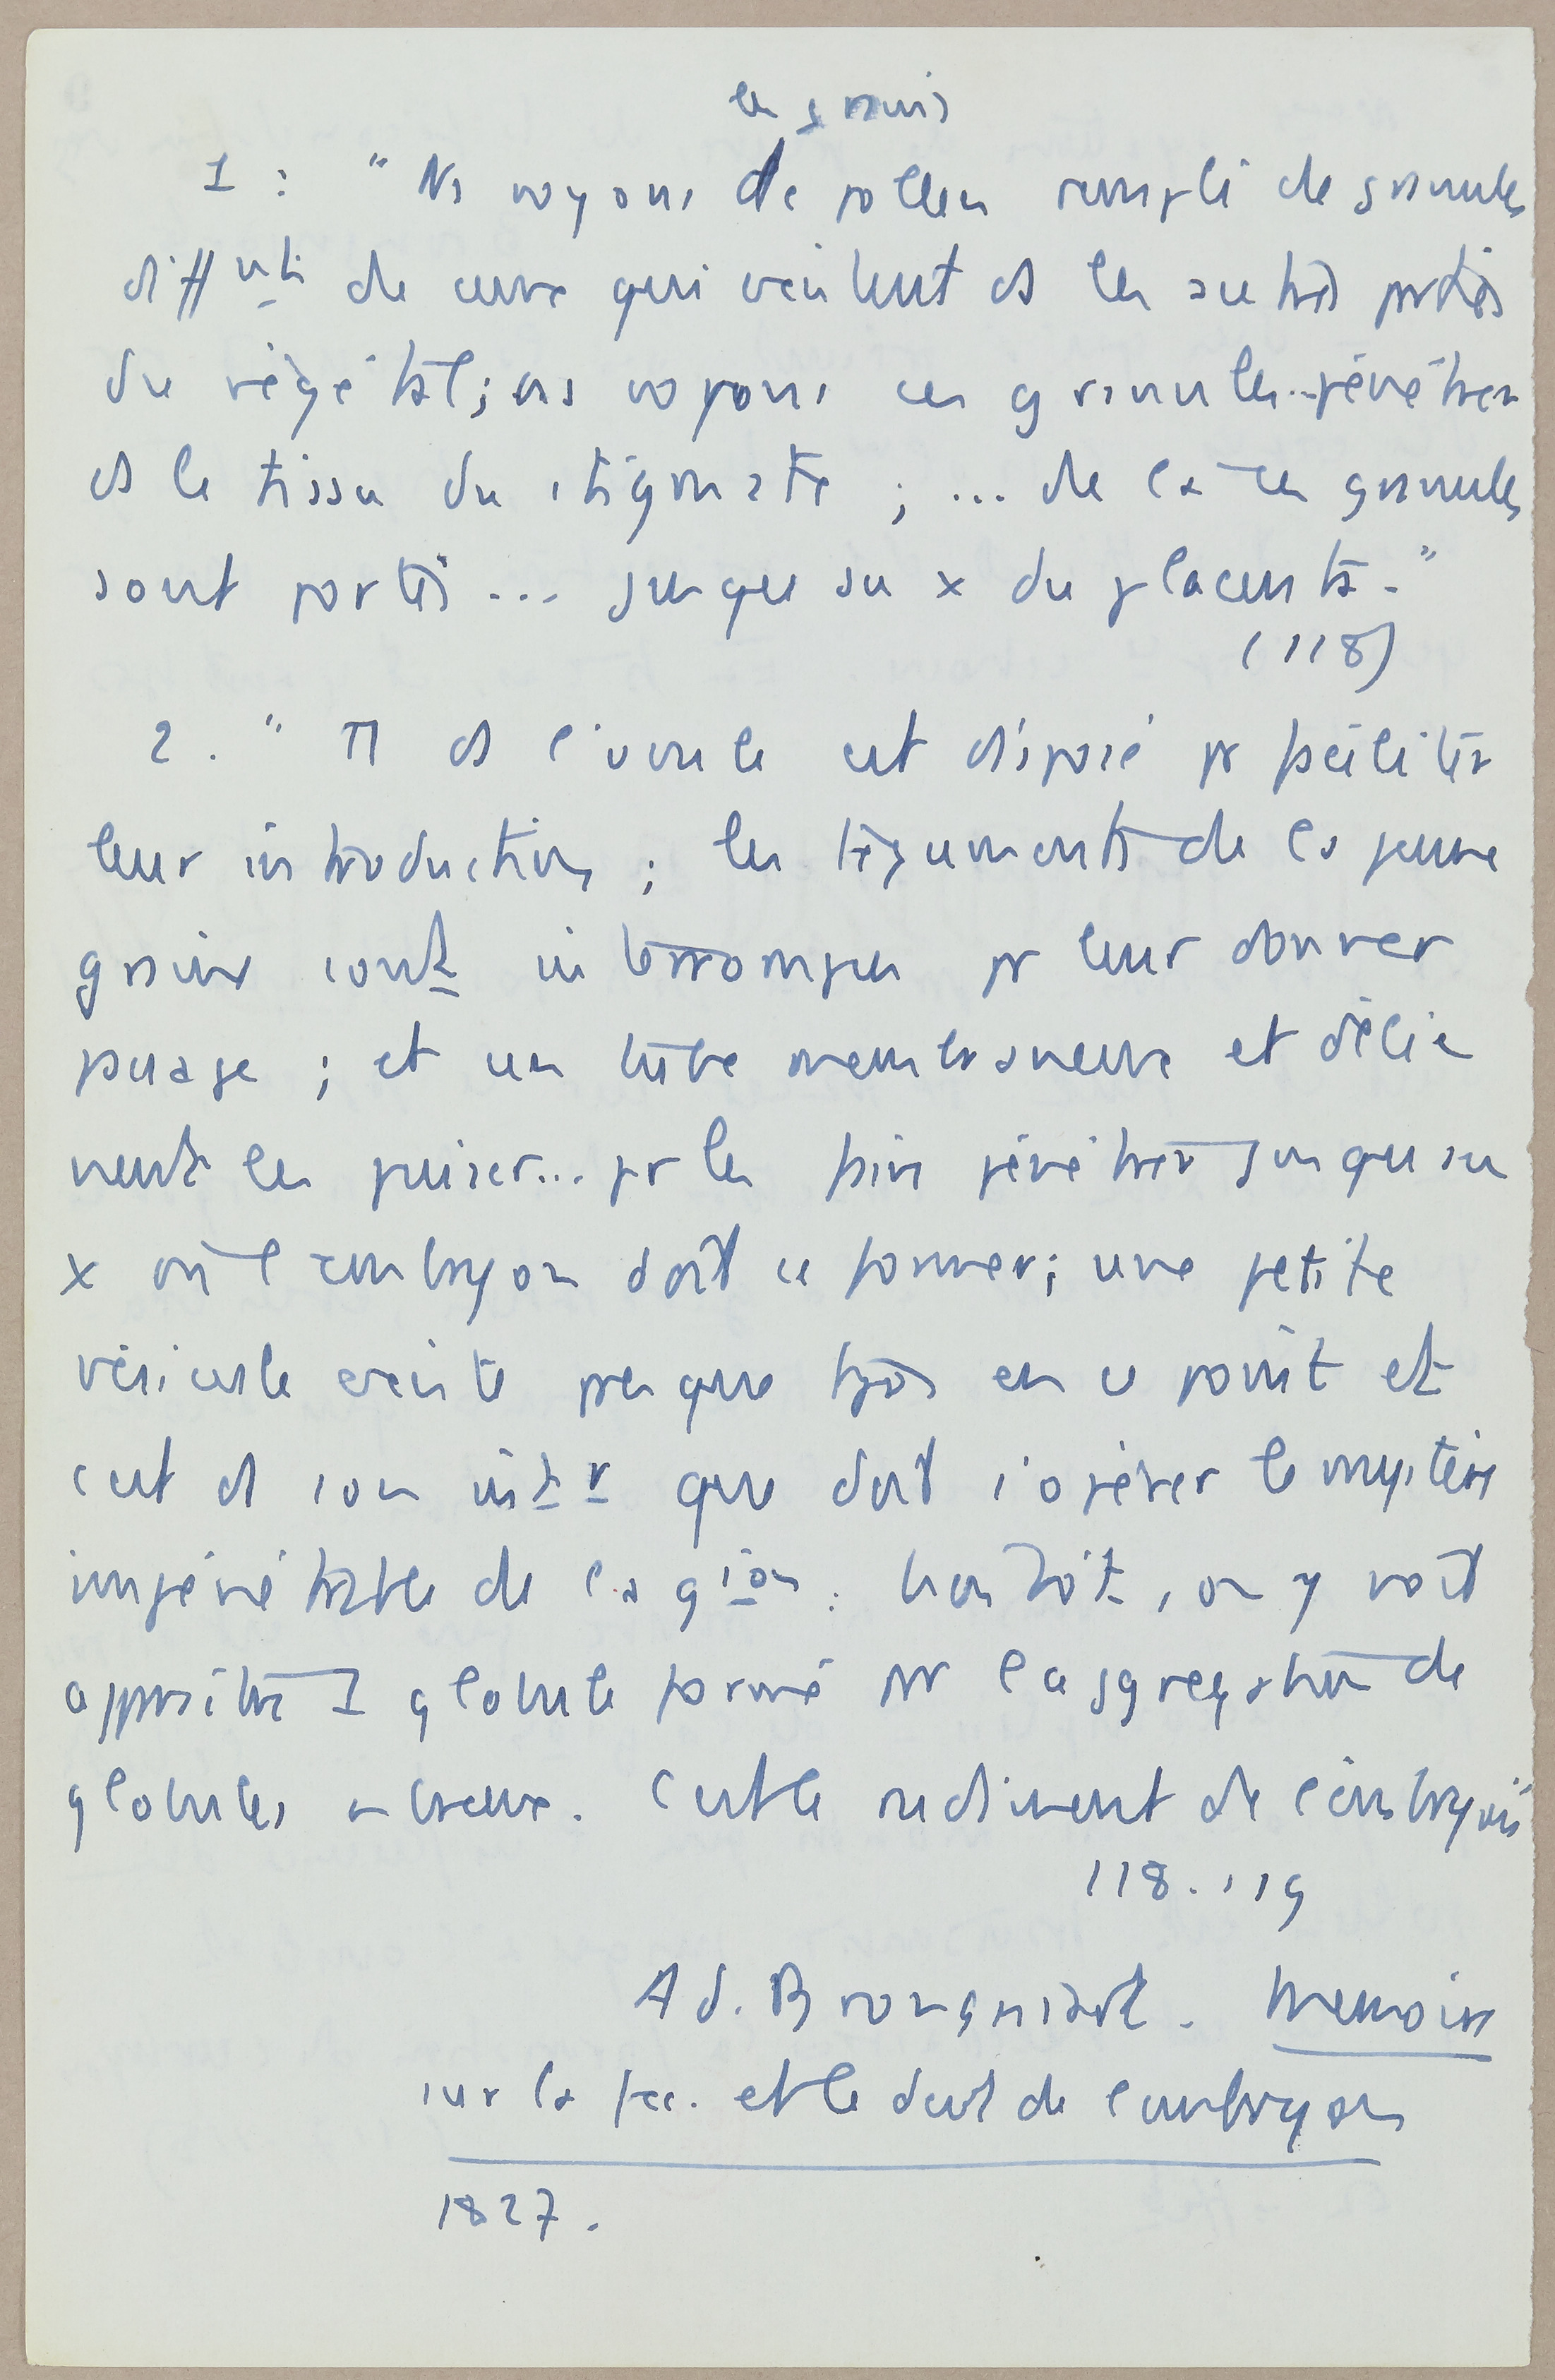 les grains
1 : " Ns voyons de pollen rempli de granules
diffnts de ceux qui existent ds les autres parties
du végétal ; ns voyons ces granules... pénétrer
ds le tissu du stigmate ; ... de là ces granules
sont portés ... jusqu'au x du placenta. "
(118)
2. " Π ds l'ovule est disposé pr faciliter
leur introduction ; les téguments de la jeune
graine sont interrompus pr leur donner
passage ; et un tube membraneux et délié
vient les puiser... pr les faire pénétrer jusqu'au
x où l'embryon doit se former ; une petite
vésicule existe presque tjrs en ce point et
c'est ds son intr que doit s'opérer le mystère
impénétrable de la gion. bientôt, on y voit
apparaître 1 globule formé par l'aggrégation de
globules nbreux. C'est le rudiment de l'embryon "
118. 119
Ad. Brongniart. Mémoire
sur la fec. et le devt de l'embryon
1827.